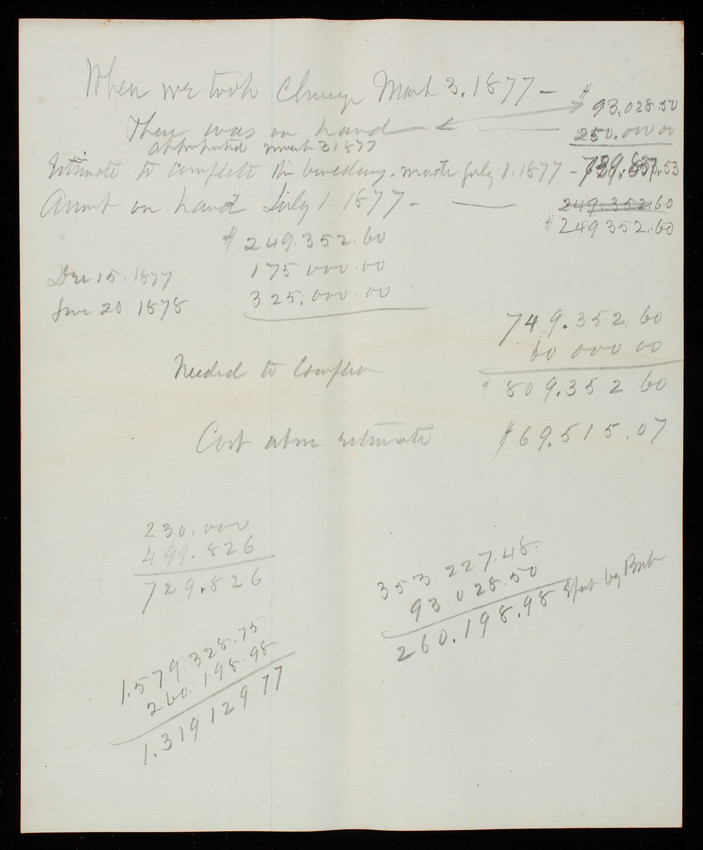 When we took Charge March 3. 1877 – $93,028.50
There was on hand — 250.000 00
appropriated March 3 1877
Estimate to complete the building. made July 1. 1877 –
Amnt on hand July 1 1877 – — 249.352.60
$249352.60
$249.352.60
Dec 15. 1877 175 000.00
June 20 1878 325.000.00
749.352.60
60 000 00
Needed to Complete $809.352 60
Cost above estimate $69.515.07
230.000
499.826
729.826
353.227.48
93.028.50
260.198.98 Spent by
1.579.328.75
260.198.98
1.319129 77